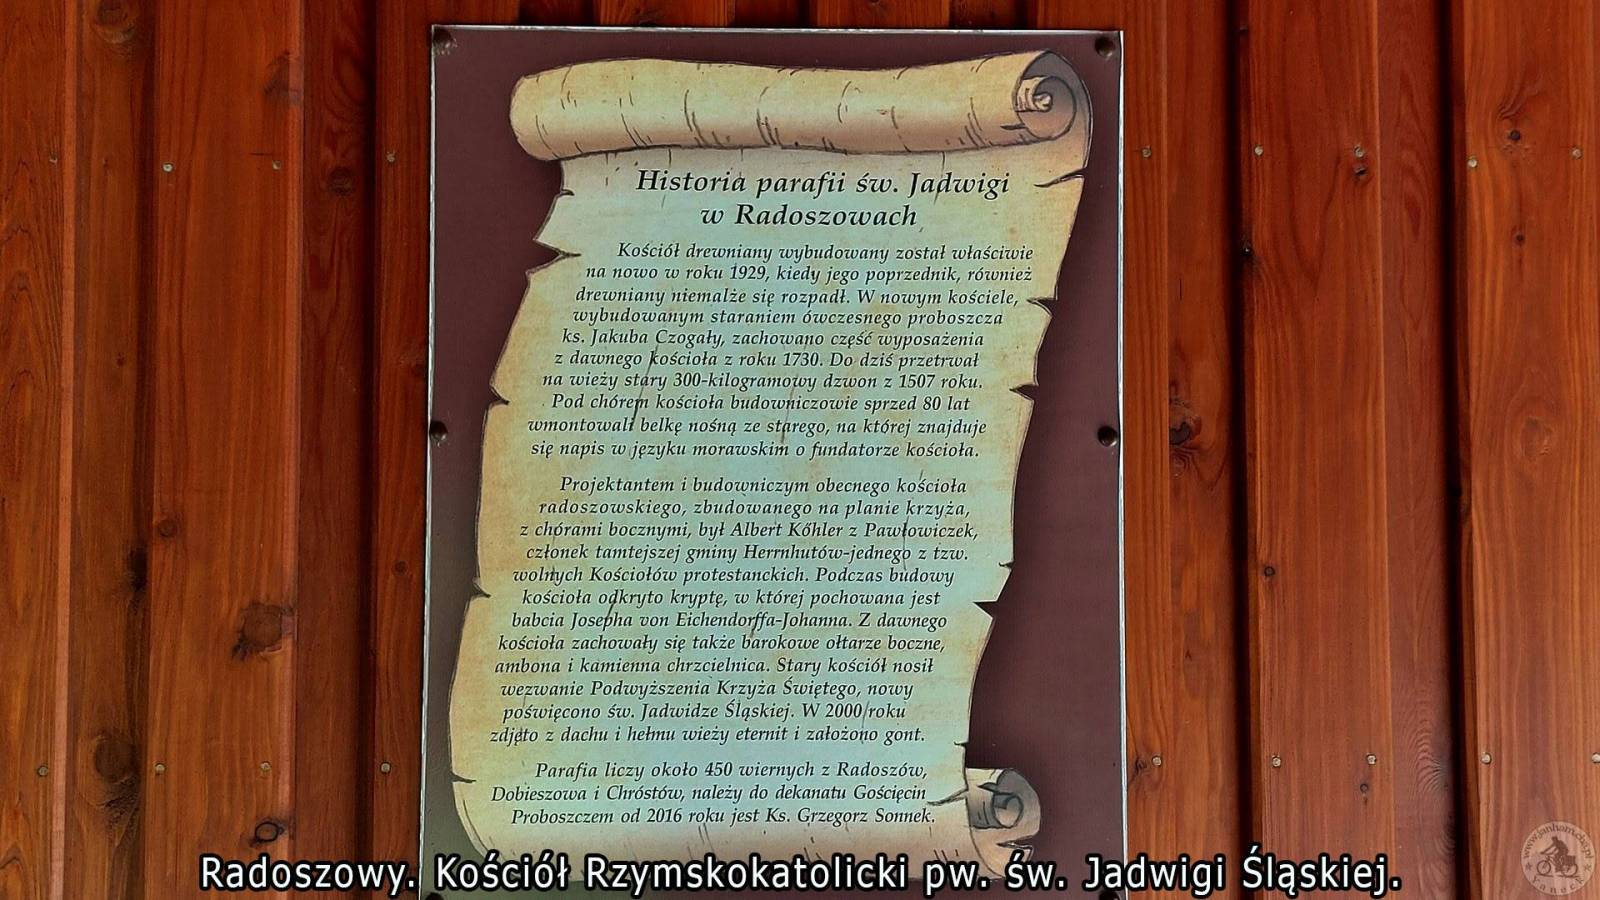 Historia parafii św. Jadwigi
w Radoszowach
Kościół drewniany wybudowany został właściwie
na nowo w roku 1929, kiedy jego poprzednik, również
drewniany niemalże się rozpadł. W nowym kościele,
wybudowanym staraniem ówczesnego proboszcza
ks. Jakuba Czogały, zachowano część wyposażenia
z dawnego kościoła z roku 1730. Do dziś przetrwał
na wieży stary 300-kilogramowy dzwon z 1507 roku.
Pod chórem kościoła budowniczowie sprzed 80 lat
wmontowali belkę nośną ze starego, na której znajduje
się napis w języku morawskim o fundatorze kościoła.
Projektantem i budowniczym obecnego kościoła
radoszowskiego, zbudowanego na planie krzyża,
z chórami bocznymi, był Albert Kőhler z Pawłowiczek,
członek tamtejszej gminy Herrnhutów-jednego z tzw.
wolnych Kościołów protestanckich. Podczas budowy
kościoła odkryto kryptę, w której pochowana jest
babcia Josepha von Eichendorffa-Johanna. Z dawnego
kościoła zachowały się także barokowe ołtarze boczne,
ambona i kamienna chrzcielnica. Stary kościół nosił
wezwanie Podwyższenia Krzyża Świętego, nowy
poświęcono św. Jadwidze Śląskiej. W 2000 roku
zdjęto z dachu i hełmu wieży eternit i założono gont.
Parafia liczy około 450 wiernych z Radoszów,
Dobieszowa i Chróstów, należy do dekanatu Gościęcin
Proboszczem od 2016 roku jest Ks. Grzegorz Sonnek.
Radoszowy. Kościół Rzymskokatolicki pw. św. Jadwigi Śląskiej.